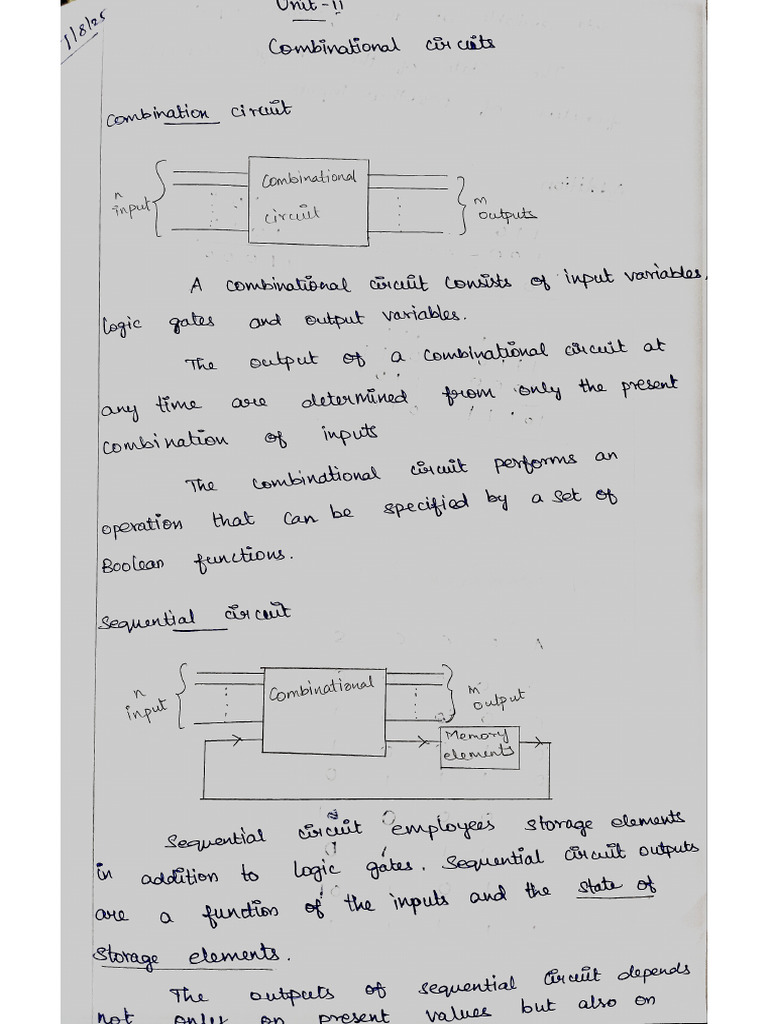 1/8/25
Unit-II
Combinational circuits
Combination circuit
n
input
Combinational
circuit
m
outputs
A combinational circuit consists of input variables,
logic gates and output variables.
The output of a combinational circuit at
any time are determined from only the present
combination of inputs
The combinational circuit performs an
operation that can be specified by a set of
Boolean functions.
Sequential circuit
n
input
Combinational
m
output
Memory
elements
Sequential circuit employees storage elements
in addition to logic gates. Sequential circuit outputs
are a function of the inputs and the state of
storage elements.
The outputs of sequential circuit depends
not only on present values but also on